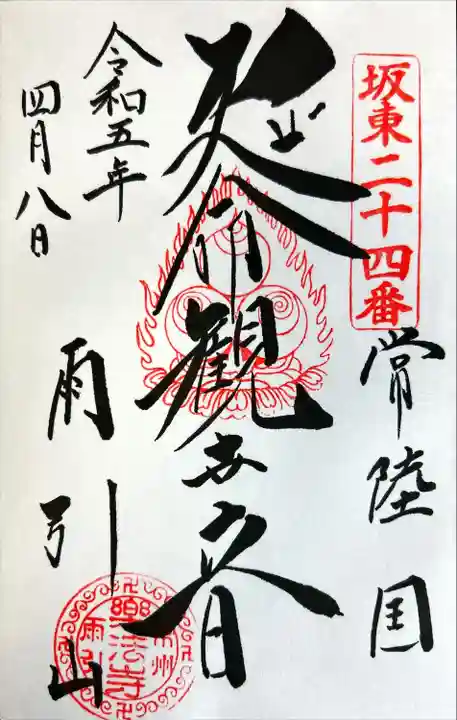 坂東二十四番
常陸国
延命観世音
雨引山
令和五年
四月八日
楽法寺
雨引